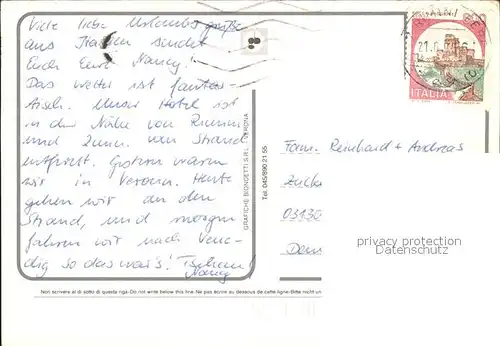 Viele liebe Urlaubsgrüße
aus Italien sendet
Euch Eure Nancy!
Das Wetter ist fantas-
tisch. Unser Hotel ist
in der Nähe von Rimini
und 2 min. vom Strand
entfernt. Gestern waren
wir in Verona. Heute
gehen wir an den
Strand, und morgen
fahren wir nach Vene-
dig so das war's! Tschau!
Nancy
GRAFICHE BIONDETTI S.R.L. - VERONA
Tel. 045/890 21 55
ITALIA
Fam. Reinhard + Andreas
03130
privacy protection
Datenschutz
Non scrivere al di sotto di questa riga-Do not write below this line-Ne pas écrire au dessous de cette ligne-Bitte nicht un